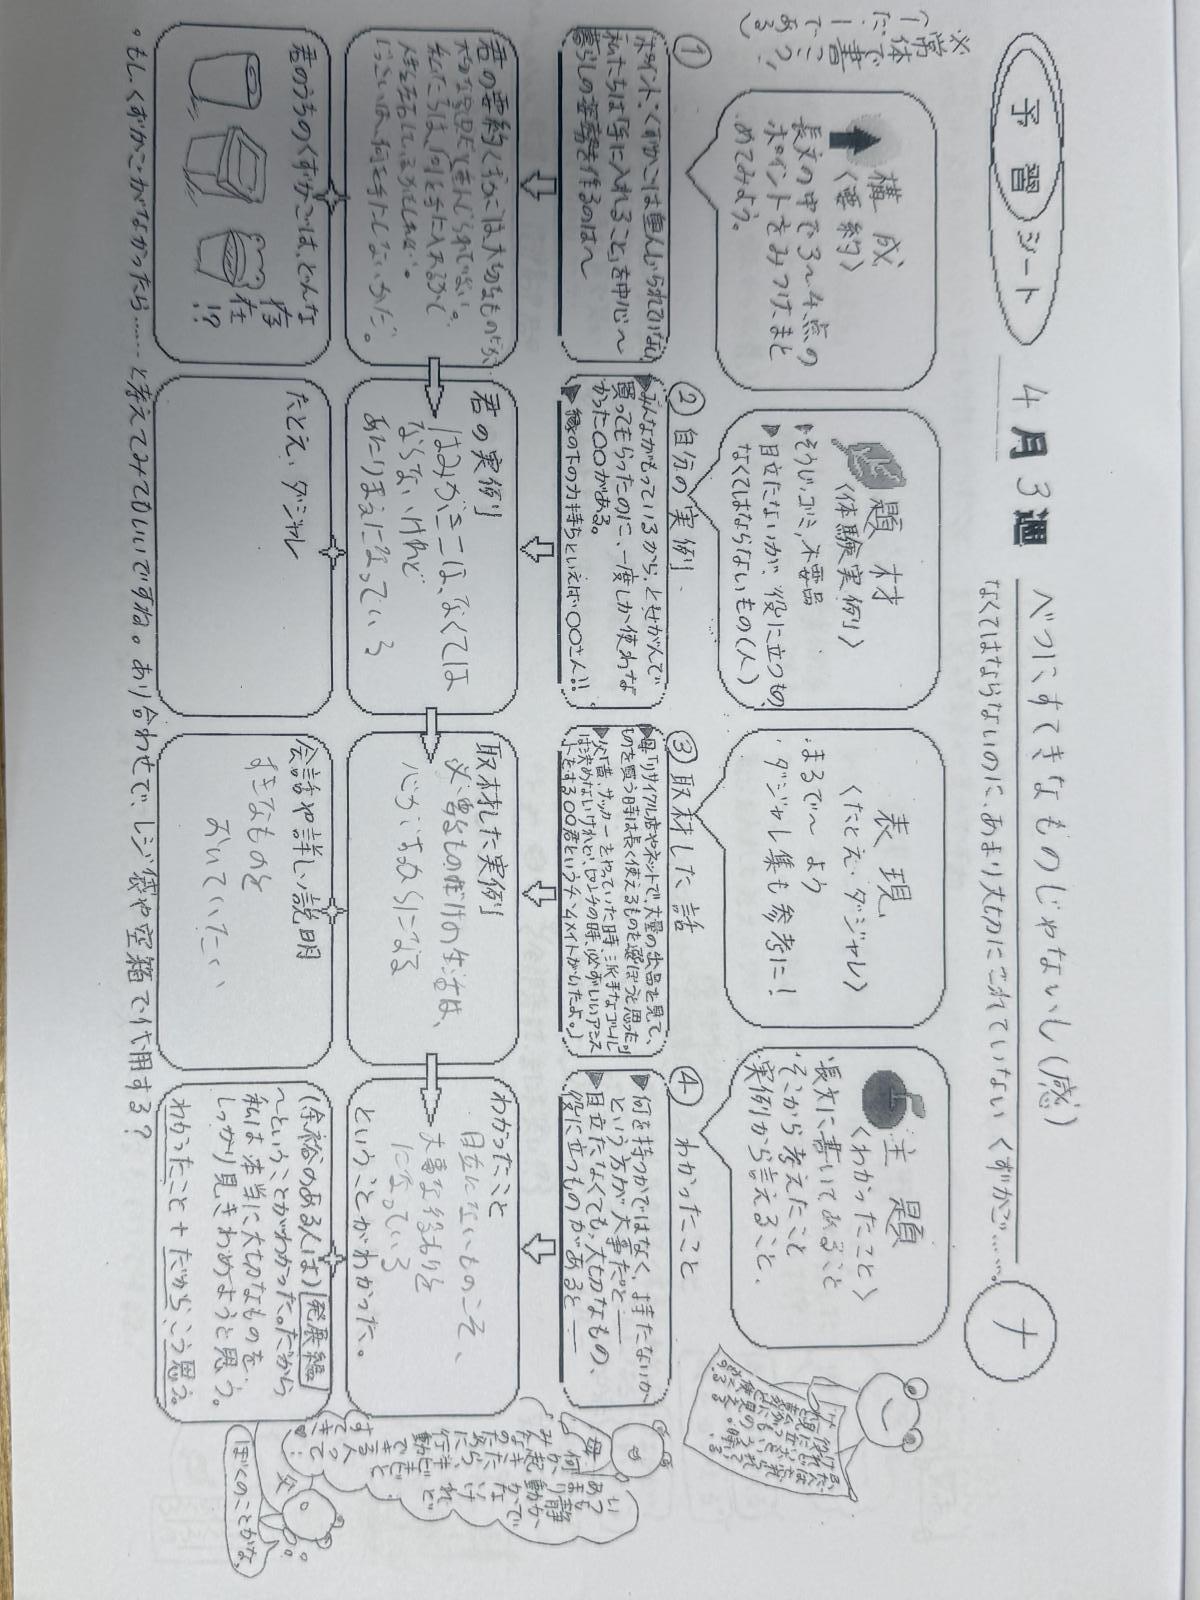 予習シート
4月3週
べつにすてきなものじゃないし(感)
なくてはならないのに、あまり大切にされていない くずかご……。
ナ
※常体で書こう!
(〜だ。〜である)
構成
〈要約〉
長文の中で3〜4点の
ポイントをみつけ、まと
めてみよう。
題材
〈体験実例〉
▶そうじ、ゴミ、不要品
▶目立たないが、役に立つもの、
なくてはならないもの(人)
表現
〈たとえ・ダジャレ〉
・まるで〜よう
・ダジャレ集も参考に!
主題
〈わかったこと〉
・長文に書いてあること
・そこから考えたこと
・実例から言えること。
①
ポイント:くずかごは重んじられていない
私たちは「手に入れること」を中心〜
暮らしの姿勢を作るのは〜
②自分の実例
▶みんながもっているから、とせがんで
買ってもらったのに、一度しか使わな
かった〇〇がある。
▶縁の下の力持ちといえば〇〇さん!!
③取材した話
▶母「リサイクル店やネットで、大量の出品を見て、
ものを買う時は長く使えるものを選ぼうと思った。」
▶父「昔、サッカーをやっていた時、派手なゴール
は決めないけれど、ピンチの時、必ずいいアシス
トをする〇〇君というチームメイトがいたよ。」
④わかったこと
▶何を持つかではなく、持たないか
という方が大事だと――
▶目立たなくても、大切なもの、
役に立つものがあると――
君の要約
くずかごは大切なものだが、
大切な家具だと重んじられていない。
私たちは、「何を手に入れるか」で
生活しているかもしれない。
君の実例
はみがきこは、なくては
ならないけれど
あたりまえになっている
取材した実例
必要なものだけの生活は、
心がすみからになる
わかったこと
目立たないものこそ、
大事な役わりを
になっている
ということがわかった。
君のうちのくずかごは、どんな
存在!?
たとえ・ダジャレ
会話や詳しい説明
すきなものを
おいていたい
(余裕のある人は)発展編
〜ということがわかった。だから
私は本当に大切なものを、
しっかり見きわめようと思う。
わかったこと+だから、こう思う。
。もし、くずかごがなかったら……と考えてみてもいいですね。あり合わせで、レジ袋や空箱で代用する?
母
父
ぼくのことかな。